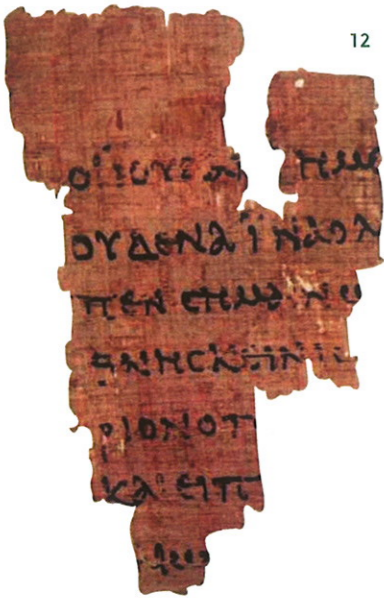 12
ΟΙ ΙΟΥΔΑΙ ΗΜΕ
ΟΥΔΕΝΑ ΪΝΑ Ο Λ
ΠΕΝ CΗΜΑΙΝΩ
ΘΝΗCΚΕΙΝ ΙC
ΡΙΟΝ Ο Π
ΚΑΙ ΕΙΠ